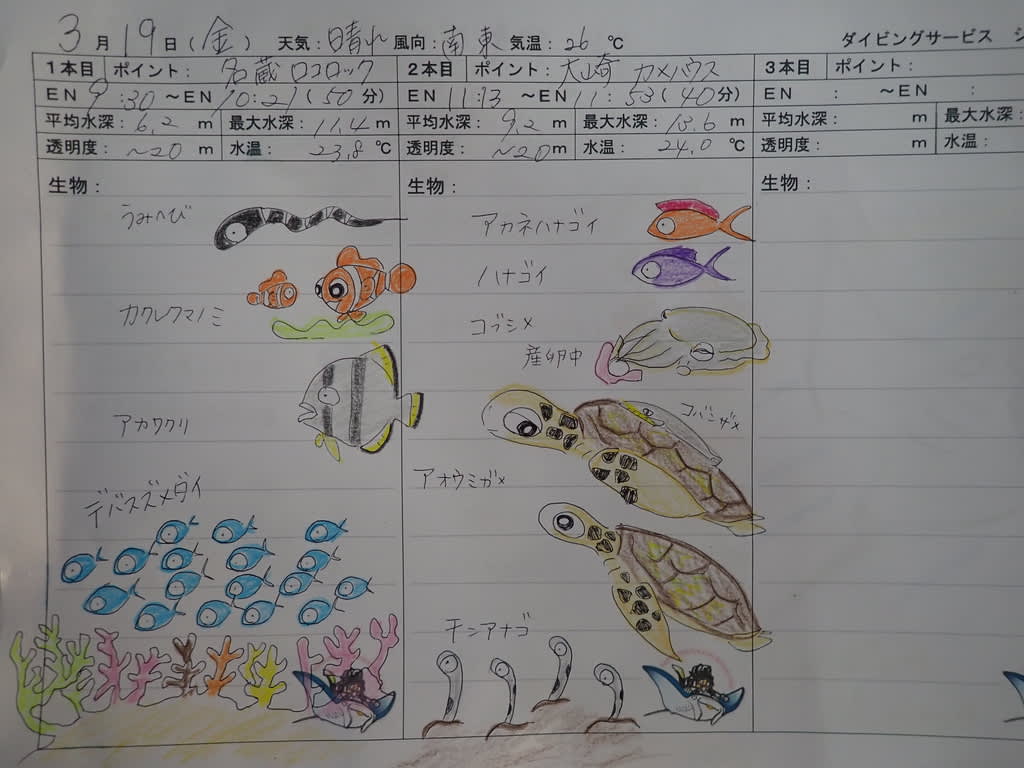 3月19日(金) 天気:晴れ 風向:南東 気温:26℃ ダイビングサービス
1本目 ポイント: 名蔵 ロコロック 2本目 ポイント: 大崎 カメハウス 3本目 ポイント:
EN 9:30 ~EN 10:21(50分) EN 11:13 ~EN 11:53(40分) EN : ~EN :
平均水深:6.2m 最大水深:11.4m 平均水深:9.2m 最大水深:13.6m 平均水深: m 最大水深:
透明度:~20m 水温:23.8℃ 透明度:~20m 水温:24.0℃ 透明度: m 水温:
生物: 生物: 生物:
うみへび
カクレクマノミ
アカククリ
デバスズメダイ
アカネハナゴイ
ハナゴイ
コブシメ
産卵中
コバンザメ
アオウミガメ
チンアナゴ